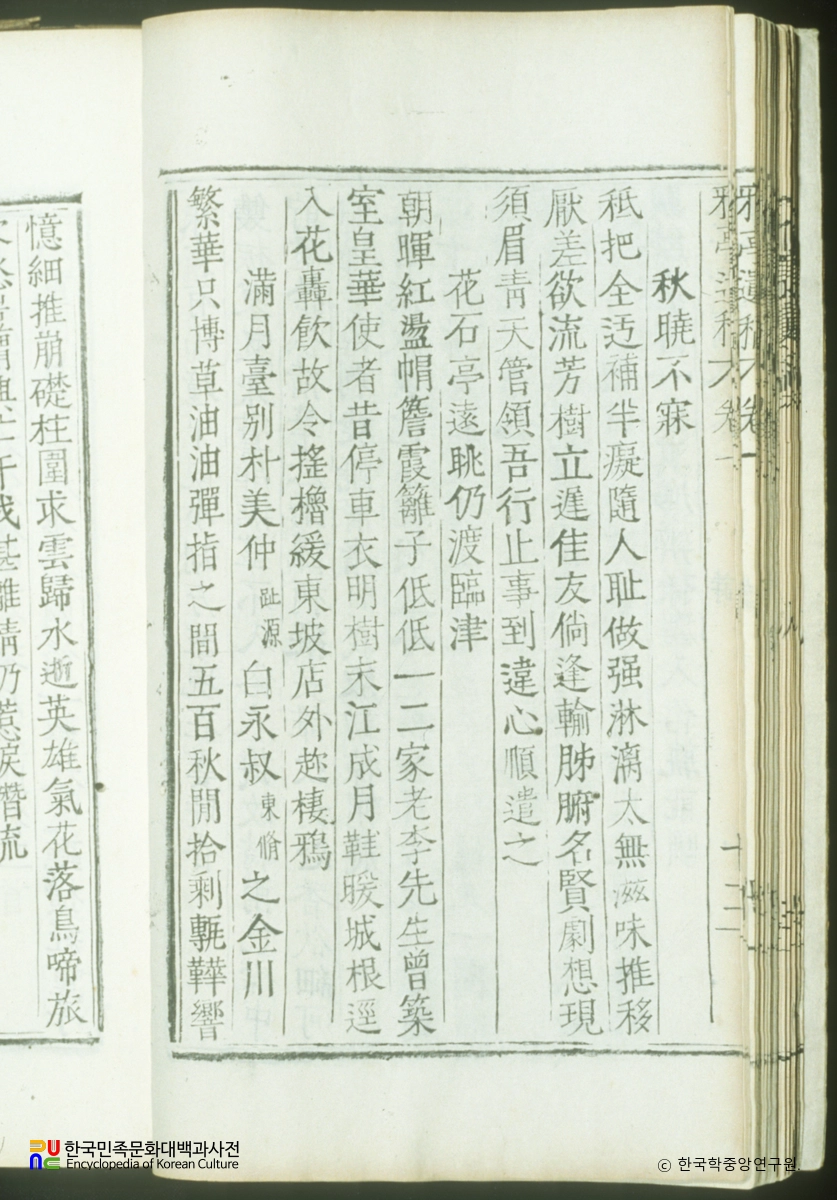 雅亭遺稿
秋曉不寐
秖把全迃補半癡隨人耻做强淋漓太無滋味推移
厭差欲流芳樹立遅佳友倘逢輸肺腑名賢劇想現
須眉靑天管領吾行止事到違心順遣之
花石亭遠眺仍渡臨津
朝暉紅盪帽簷霞籬子低低一二家老李先生曾築
室皇華使者昔停車衣明樹末江成月鞋暖城根逕
入花轟飮故令搖櫓緩東坡店外趂棲鴉
滿月臺別朴美仲趾源白永叔東脩之金川
繁華只博草油油彈指之間五百秋閒拾剩甎鞾響
憶細推崩礎柱圍求雲歸水逝英雄氣花落鳥啼旅
甚難情乃惹淚潛流
한국민족문화대백과사전
Encyclopedia of Korean Culture
ⓒ 한국학중앙연구원.